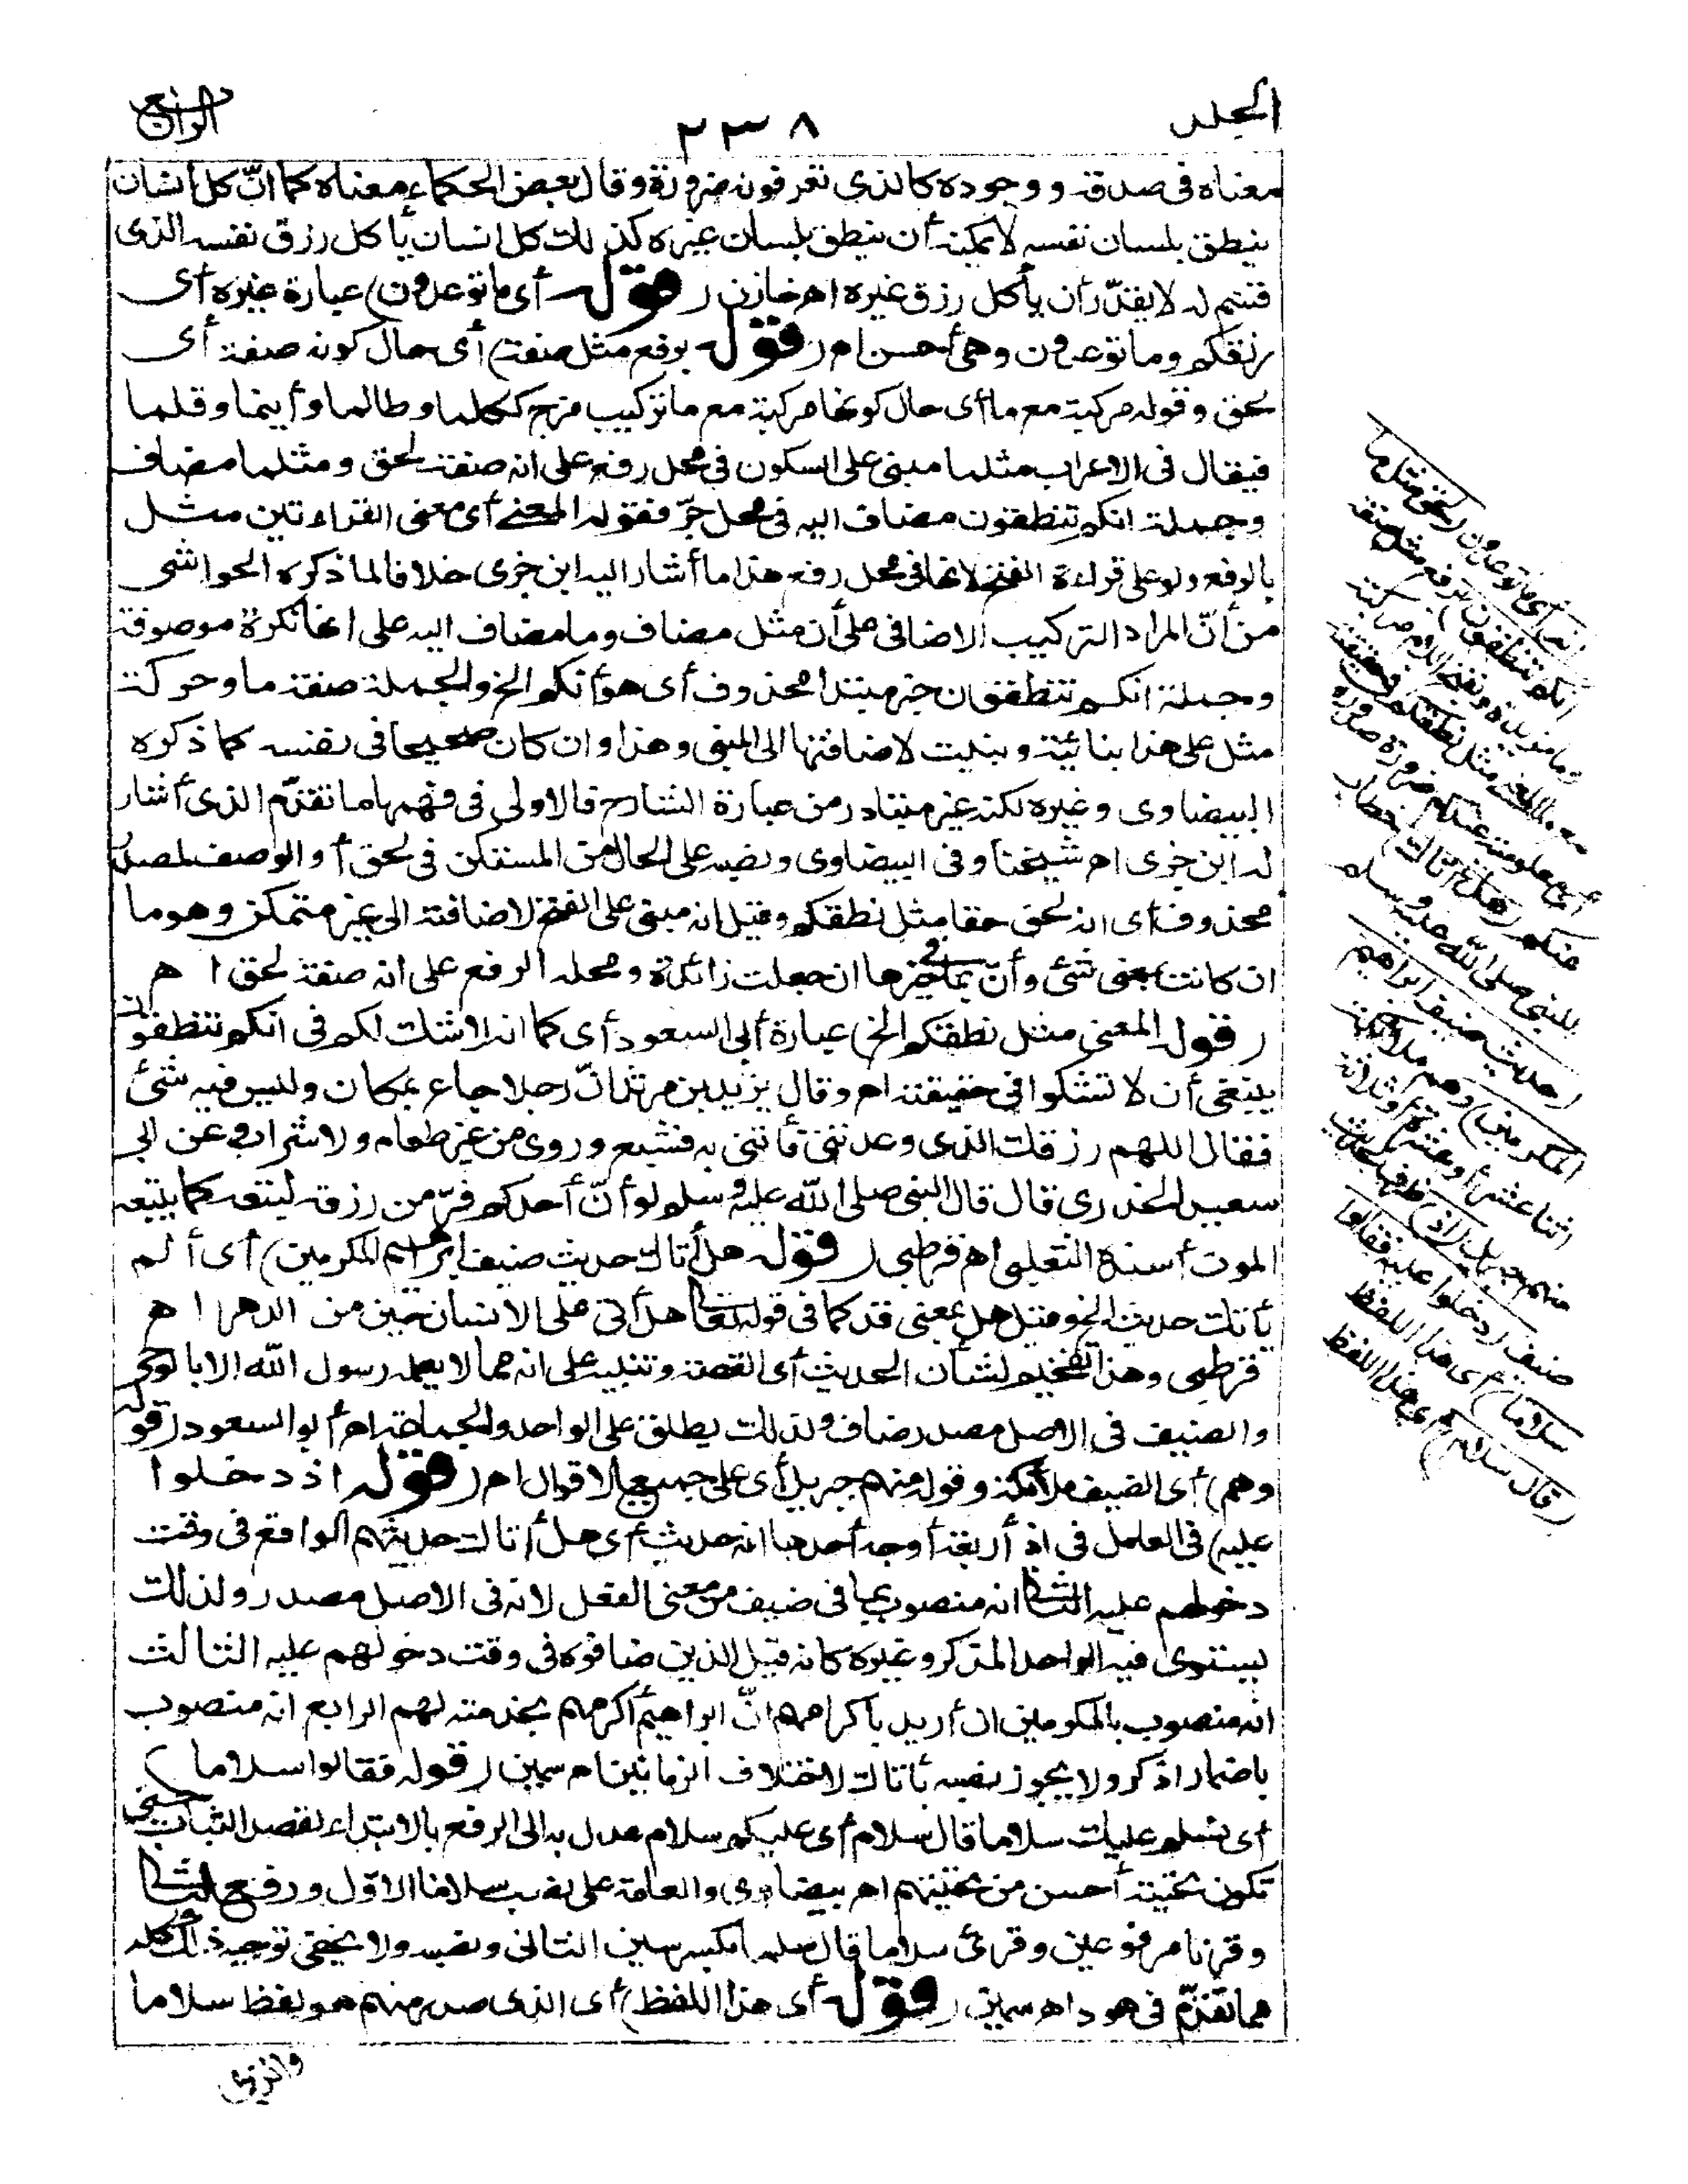 الجلد
٢٣٨
الرابع
معناه في صدقه ووجوده كالذي تعرفونه ضرورة وقال بعض الحكماء معناه كما انّ كل انسان
ينطق بلسان نفسه لا يمكنه أن ينطق بلسان غيره كذلك كل انسان يأكل رزق نفسه الذي
قسم له لا يقدر أن يأكل رزق غيره اهـ خازن (قوله أي ما توعدون) عبارة غيره أي
رزقكم وما توعدون وهي أحسن اهـ (قوله برفع مثل صفة) أي حال كونه صفة أي
لحق وقوله مركبة مع ما أي حال كونها مركبة مع ما تركيب مزج ككلما وطالما وأينما وقلما
فيقال في الاعراب مثلما مبني على السكون في محل رفع على انه صفة لحق ومثلما مضاف
وجملة انكم تنطقون مضاف اليه في محل جرّ فقوله المعنى أي معنى القراءتين مثل
بالرفع ولو على قراءة الفتح لانها في محل رفع هذا ما أشار اليه ابن جزى خلافا لما ذكره الحواشي
من أنّ المراد التركيب الاضافي على أن مثل مضاف وما مضاف اليه على انها نكرة موصوفة
وجملة انكم تنطقون خبر مبتدا محذوف أي هو أنكم الخ والجملة صفة ما وحركة
مثل على هذا بنائية وبنيت لاضافتها الى المبني وهذا وان كان صحيحا في نفسه كما ذكره
البيضاوي وغيره لكنه غير متبادر من عبارة الشارح فالاولى في فهمها ما تقدّم الذي أشار
له ابن جزى اهـ شيخنا وفي البيضاوي ونصبه على الحال من المستكن في لحق أو الوصف لمصدر
محذوف أي انه لحق حقا مثل نطقكم وقيل انه مبني على الفتح لاضافته الى غير متمكن وهو ما
ان كانت بمعنى شئ وأنّ بما في حيزها ان جعلت زائدة ومحله الرفع على انه صفة لحق ا هـ
(قوله المعنى مثل نطقكم الخ) عبارة أبي السعود أي كما انه لا شك لكم في انكم تنطقون
ينبغي أن لا تشكوا في حقيقته اهـ وقال يزيد بن مرثد انّ رجلا جاع بمكان وليس فيه شئ
فقال اللهم رزقك الذي وعدتني فأتني به فشبع وروى من غير طعام ولا شراب وعن ابي
سعيد الخدري قال قال النبي صلى الله عليه وسلم لو أنّ أحدكم فرّ من رزقه ليتبعه كما يتبعه
الموت أسنده الثعلبي اهـ قرطبي (قوله هل أتاك حديث ضيف ابراهيم المكرمين) أي ألم
يأتك حديث الخ وقيل هل بمعنى قد كما في قوله تعالى هل أتى على الانسان حين من الدهر ا هـ
قرطبي وهذا تفخيم لشأن الحديث أي القصة وتنبيه على انه مما لا يعلمه رسول الله الا بالوحي
والضيف في الاصل مصدر ضاف ولذلك يطلق على الواحد والجماعة اهـ أبو السعود (قوله
وهم) أي الضيف ملائكة وقوله منهم جبريل أي على جميع الاقوال اهـ (قوله اذ دخلوا
عليه) في العامل في اذ أربعة أوجه أحدها انه حديث أي هل أتاك حديثهم الواقع في وقت
دخولهم عليه الثاني انه منصوب بما في ضيف من معنى الفعل لانه في الاصل مصدر ولذلك
يستوى فيه الواحد المذكر وغيره كانه قيل الذين ضافوه في وقت دخولهم عليه الثالث
انه منصوب بالمكرمين ان أريد باكرامهم انّ ابراهيم أكرمهم بخدمته لهم الرابع انه منصوب
باضمار اذكر ولا يجوز نصبه بأتاك لاختلاف الزمانين اهـ سمين (قوله فقالوا سلاما)
أي نسلم عليك سلاما قال سلام أي عليكم سلام عدل به الى الرفع بالابتداء لقصد الثبات حتى
تكون تحيته أحسن من تحيتهم اهـ بيضاوي والعامة على نصب سلاما الاوّل ورفع الثاني
وقرئا مرفوعين وقرئ سلاما قال سلما بكسر سين الثاني ونصبه ولا يخفى توجيه ذلك كله
مما تقدّم في هود اهـ سمين (قوله أي هذا اللفظ) أي الذي صدر منهم هو لفظ سلاما
أي ما توعدون (لحق مثل ما
انكم تنطقون) برفع مثل صفة
وما مزيدة وبفتح اللام مركبة
مع ما المعنى مثل نطقكم في حقيقته
أي معلوميته عندكم ضرورة صدوره
عنكم (هل أتاك) خطاب
للنبي صلى الله عليه وسلم
(حديث ضيف ابراهيم
المكرمين) وهم ملائكة
اثنا عشر أو عشرة أو ثلاثة
منهم جبريل (اذ) ظرف لحديث
ضيف (دخلوا عليه فقالوا
سلاما) أي هذا اللفظ
(قال سلام) أي هذا اللفظ